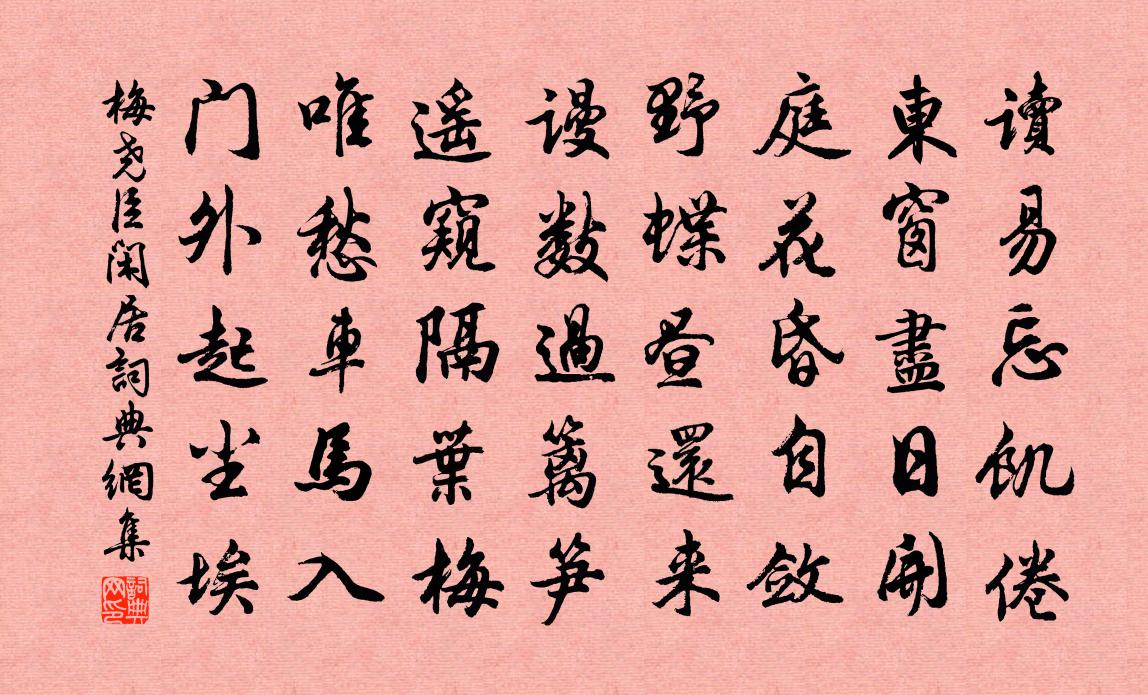 讀易忘飢倦
東窗盡日開
庭花昏自斂
野蝶昼還来
謾數過籬笋
遥窺隔葉梅
唯愁車馬入
门外起尘埃
梅尧臣闲居詞典網集
詞典网印